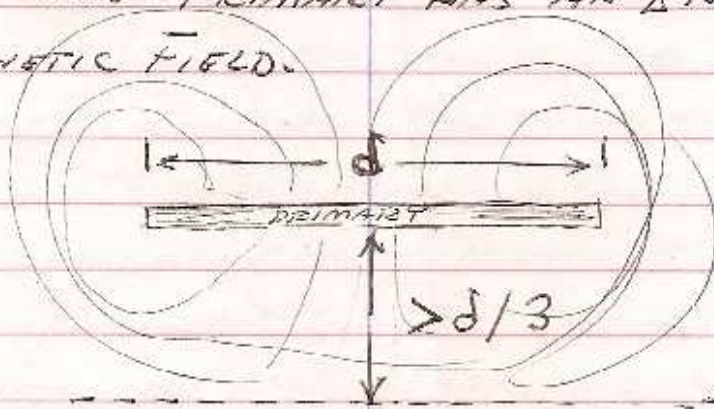 PRIMARY HAS AN
MAGNETIC FIELD.
d
PRIMARY
>d/3